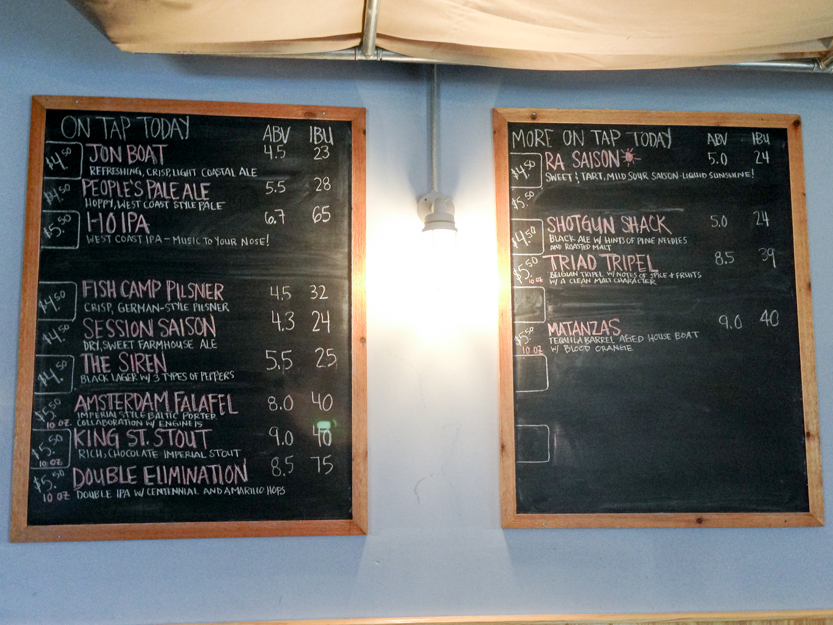 ON TAP TODAY ABV IBU
$4.50 JON BOAT 4.5 23
REFRESHING, CRISP, LIGHT COASTAL ALE
$4.50 PEOPLE'S PALE ALE 5.5 28
HOPPY, WEST COAST STYLE PALE
$5.50 HOIPA 6.7 65
WEST COAST IPA - MUSIC TO YOUR NOSE!
$4.50 FISH CAMP PILSNER 4.5 32
CRISP, GERMAN-STYLE PILSNER
$4.50 SESSION SAISON 4.3 24
DRY, SWEET FARMHOUSE ALE
$4.50 THE SIREN 5.5 25
BLACK LAGER W/ 3 TYPES OF PEPPERS
$5.50 AMSTERDAM FALAFEL 8.0 40
IMPERIAL STYLE BALTIC PORTER
10 OZ COLLABORATION W/ ENGINE 15
$5.50 KING ST. STOUT 9.0 40
10 OZ RICH, CHOCOLATE IMPERIAL STOUT
$5.50 DOUBLE ELIMINATION 8.5 75
10 OZ DOUBLE IPA W/ CENTENNIAL AND AMARILLO HOPS
MORE ON TAP TODAY ABV IBU
$4.50 RA SAISON 5.0 24
SWEET & TART, MILD SOUR SAISON-LIQUID SUNSHINE!
$5.50
$4.50 SHOTGUN SHACK 5.0 24
BLACK ALE W/ HINTS OF PINE NEEDLES
AND ROASTED MALT
$5.50 TRIAD TRIPEL 8.5 39
BELGIAN TRIPEL W/ NOTES OF SPICE + FRUITS
10 OZ W/ A CLEAN MALT CHARACTER
$5.50 MATANZAS 9.0 40
TEQUILA BARREL AGED HOUSE BOAT
10 OZ W/ BLOOD ORANGE